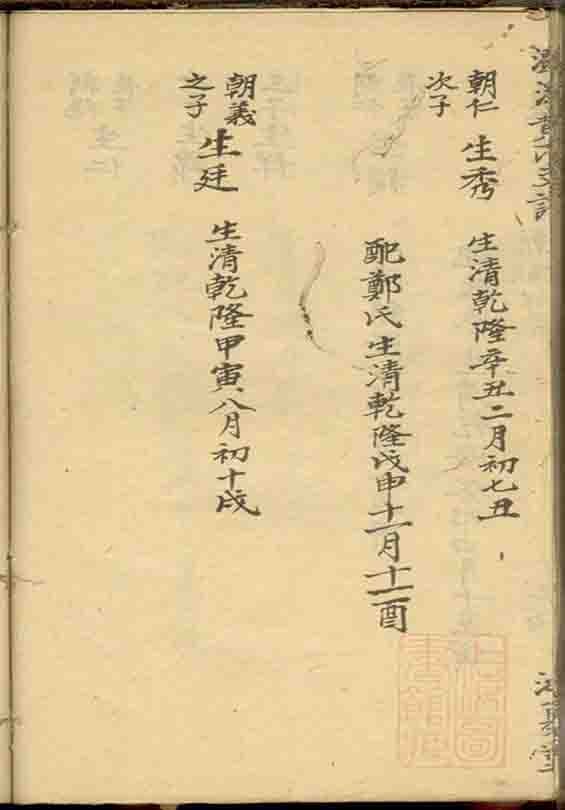 朝仁
次子
生秀
生清乾隆辛丑二月初七丑
配鄭氏生清乾隆戊申十一月十二酉
朝義
之子
生廷
生清乾隆甲寅八月初十戌
上海圖
書館藏